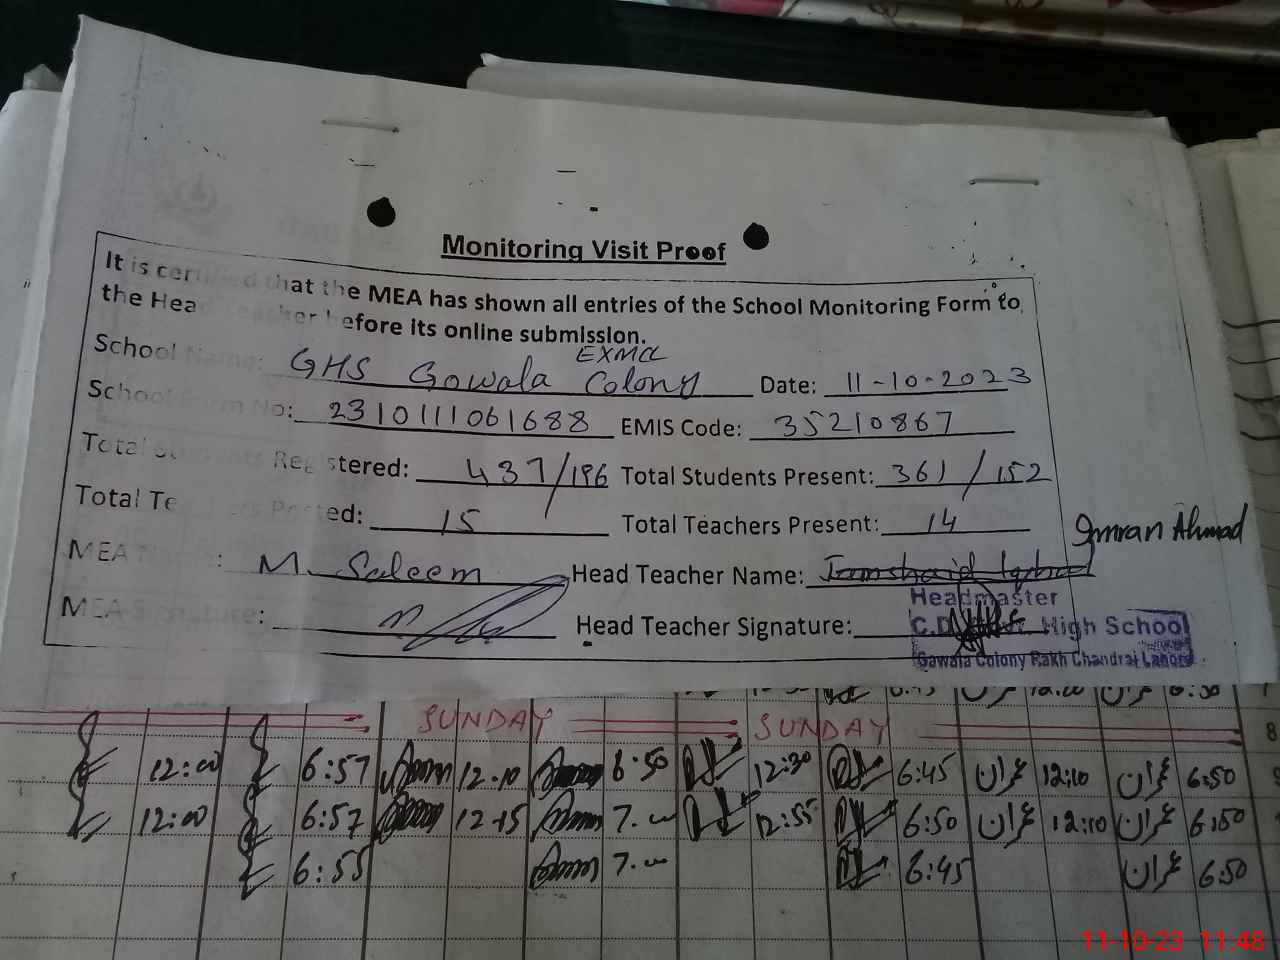 Monitoring Visit Proof
It is certified that the MEA has shown all entries of the School Monitoring Form to
the Head Teacher before its online submission.
School Name: GHS Gowala EXMCL Colony Date: 11-10-2023
School Form No: 2310111061688 EMIS Code: 35210867
Total Students Registered: 437/196 Total Students Present: 361/152
Total Teachers Posted: 15 Total Teachers Present: 14
Imran Ahmad
MEA : M. Saleem Head Teacher Name: Jamshaid Iqbal
MEA Signature: Head Teacher Signature:
Headmaster
C.D. High School
Gawala Colony Rakh Chandrai Lahore
SUNDAY SUNDAY 8
12:00 6:57 12-10 6:50 12:30 6:45 عمران 12:10 عمران 6:50
12:00 6:57 12-15 7.00 12:55 6:50 عمران 12:10 عمران 6:50
6:55 7.00 6:45 عمران 6:50
11-10-23 11:48